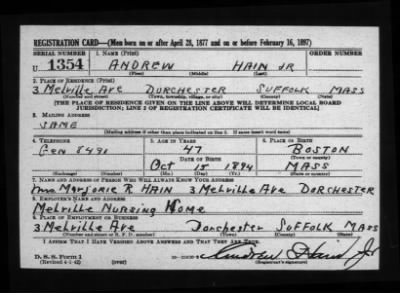 REGISTRATION CARD—(Men born on or after April 28, 1877 and on or before February 16, 1897)
SERIAL NUMBER 1. NAME (Print) ORDER NUMBER
U 1354 ANDREW HAIN JR
(First) (Middle) (Last)
2. PLACE OF RESIDENCE (Print)
3 Melville Ave DORCHESTER SUFFOLK MASS
(Number and street) (Town, township, village, or city) (County) (State)
[THE PLACE OF RESIDENCE GIVEN ON THE LINE ABOVE WILL DETERMINE LOCAL BOARD
JURISDICTION; LINE 2 OF REGISTRATION CERTIFICATE WILL BE IDENTICAL]
3. MAILING ADDRESS
SAME
[Mailing address if other than place indicated on line 2. If same insert word same]
4. TELEPHONE 5. AGE IN YEARS 6. PLACE OF BIRTH
GEN 8491 47 BOSTON
DATE OF BIRTH (Town or county)
Oct 15 1894 MASS
(Exchange) (Number) (Mo.) (Day) (Yr.) (State or country)
7. NAME AND ADDRESS OF PERSON WHO WILL ALWAYS KNOW YOUR ADDRESS
Mrs Marjorie R HAIN 3 Melville Ave DORCHESTER
8. EMPLOYER'S NAME AND ADDRESS
Melville Nursing Home
9. PLACE OF EMPLOYMENT OR BUSINESS
3 Melville Ave Dorchester SUFFOLK MASS
(Number and street or R. F. D. number) (Town) (County) (State)
I AFFIRM THAT I HAVE VERIFIED ABOVE ANSWERS AND THAT THEY ARE TRUE.
D. S. S. Form 1
(Revised 4-1-42) (over) Andrew Hain Jr
(Registrant's signature)